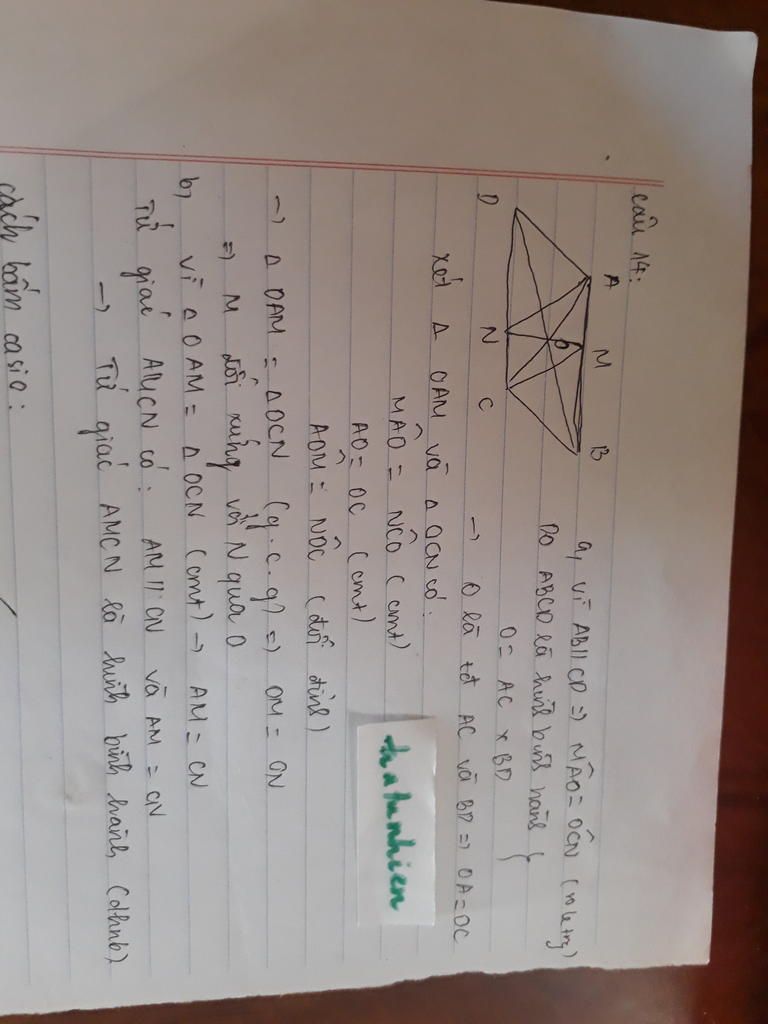 câu 14:
A M B
O
D N C
a, vì AB // CD => MÂO = OĈN (so le trg)
Do ABCD là hình bình hành {
O = AC x BD
→ O là tđ AC và BD => OA = OC
xét Δ OAM và Δ OCN có:
MÂO = NĈO (cmt)
AO = OC (cmt)
AÔM = NÔC (đối đỉnh)
thatunhien
→ Δ OAM = Δ OCN (g.c.g) => OM = ON
=> M đối xứng với N qua O
b, vì Δ OAM = Δ OCN (cmt) → AM = CN
Tứ giác AMCN có: AM // CN và AM = CN
→ Tứ giác AMCN là hình bình hành (dhnb)
cách bấm casio: